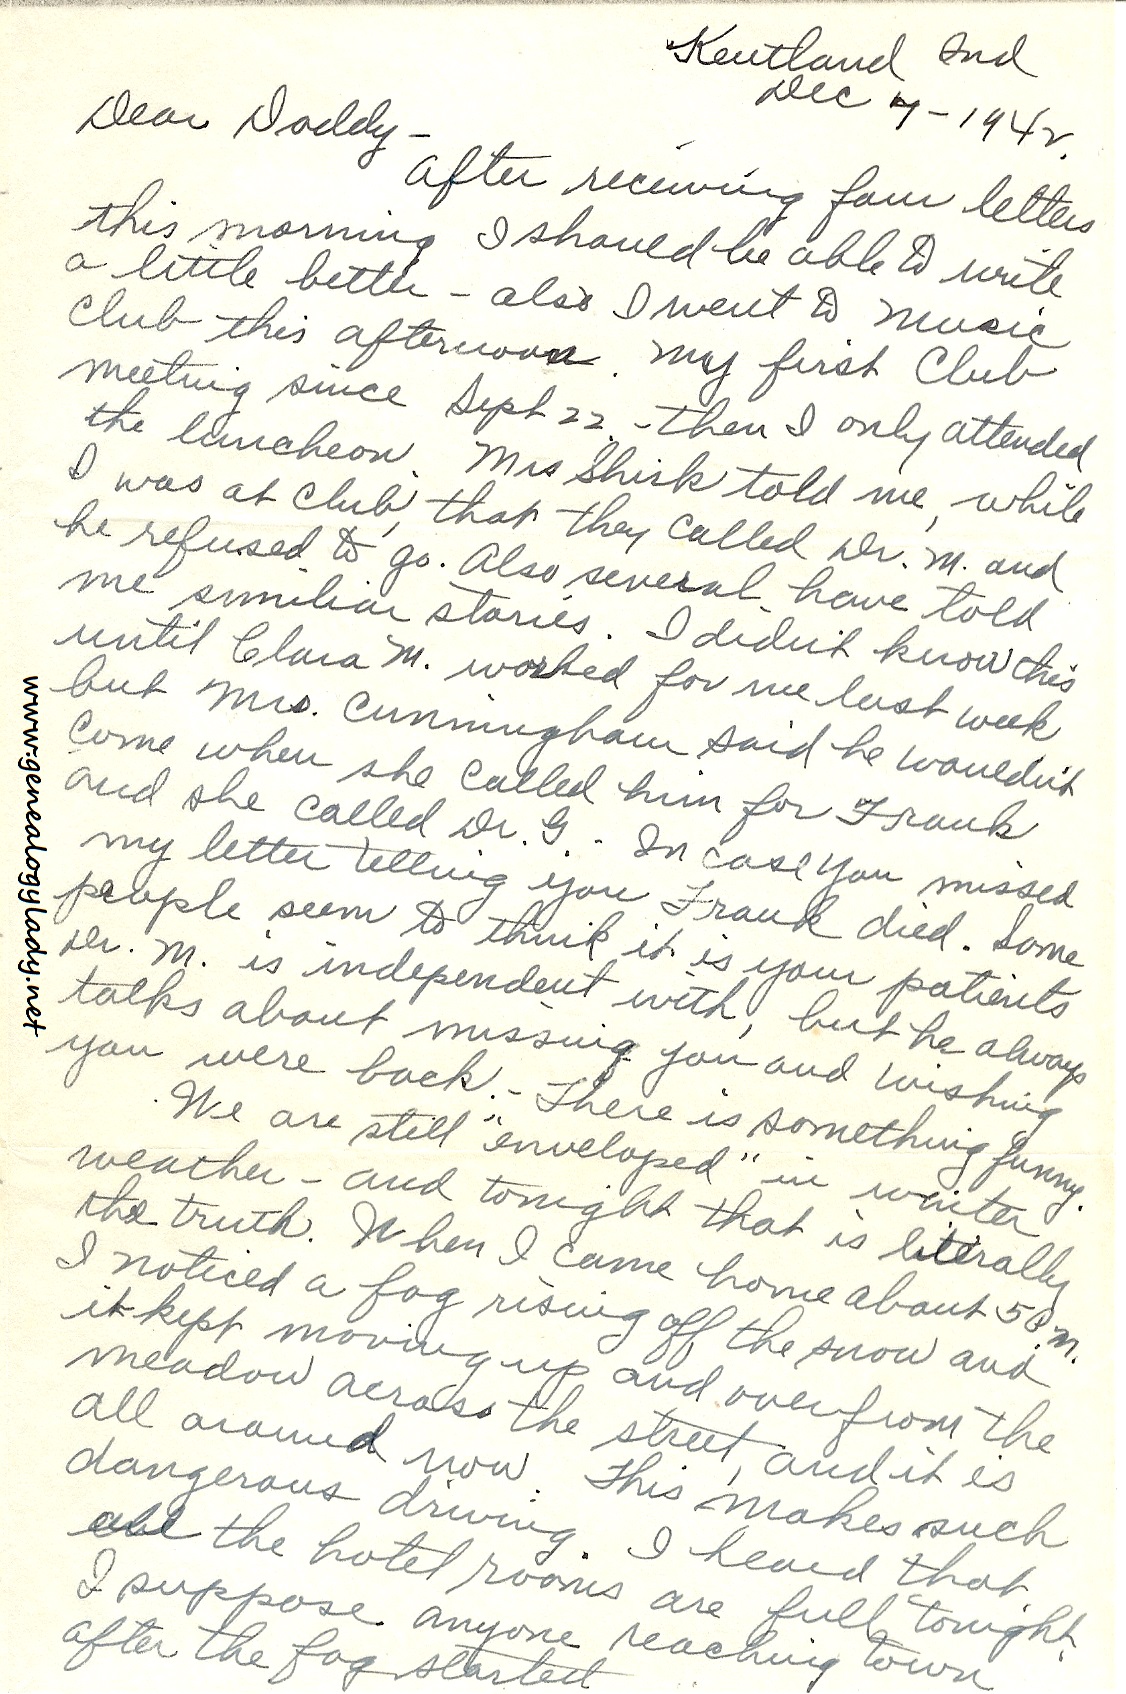 Kentland Ind
Dec 7-1942.
Dear Daddy-
After receiving four letters
this morning I should be able to write
a little better - also I went to Music
Club this afternoon. My first Club
meeting since Sept 22. - then I only attended
the luncheon. Mrs Shirk told me, while
I was at club, that they called Dr. M. and
he refused to go. Also several have told
me similiar stories. I didn't know this
until Clara M. worked for me last week
but Mrs. Cunningham said he wouldn't
come when she called him for Frank
and she called Dr. G.. In case you missed
my letter telling you Frank died. Some
people seem to think it is your patients
Dr. M. is independent with, but he always
talks about missing you and wishing
you were back. - There is something funny.
We are still "enveloped" in winter
weather - and tonight that is literally
the truth. When I came home about 5 P.M.
I noticed a fog rising off the snow and
it kept moving up and over from the
meadow across the street, and it is
all around now. This makes such
dangerous driving. I heard that
all the hotel rooms are full tonight.
I suppose anyone reaching town
after the fog started
www.genealogylady.net